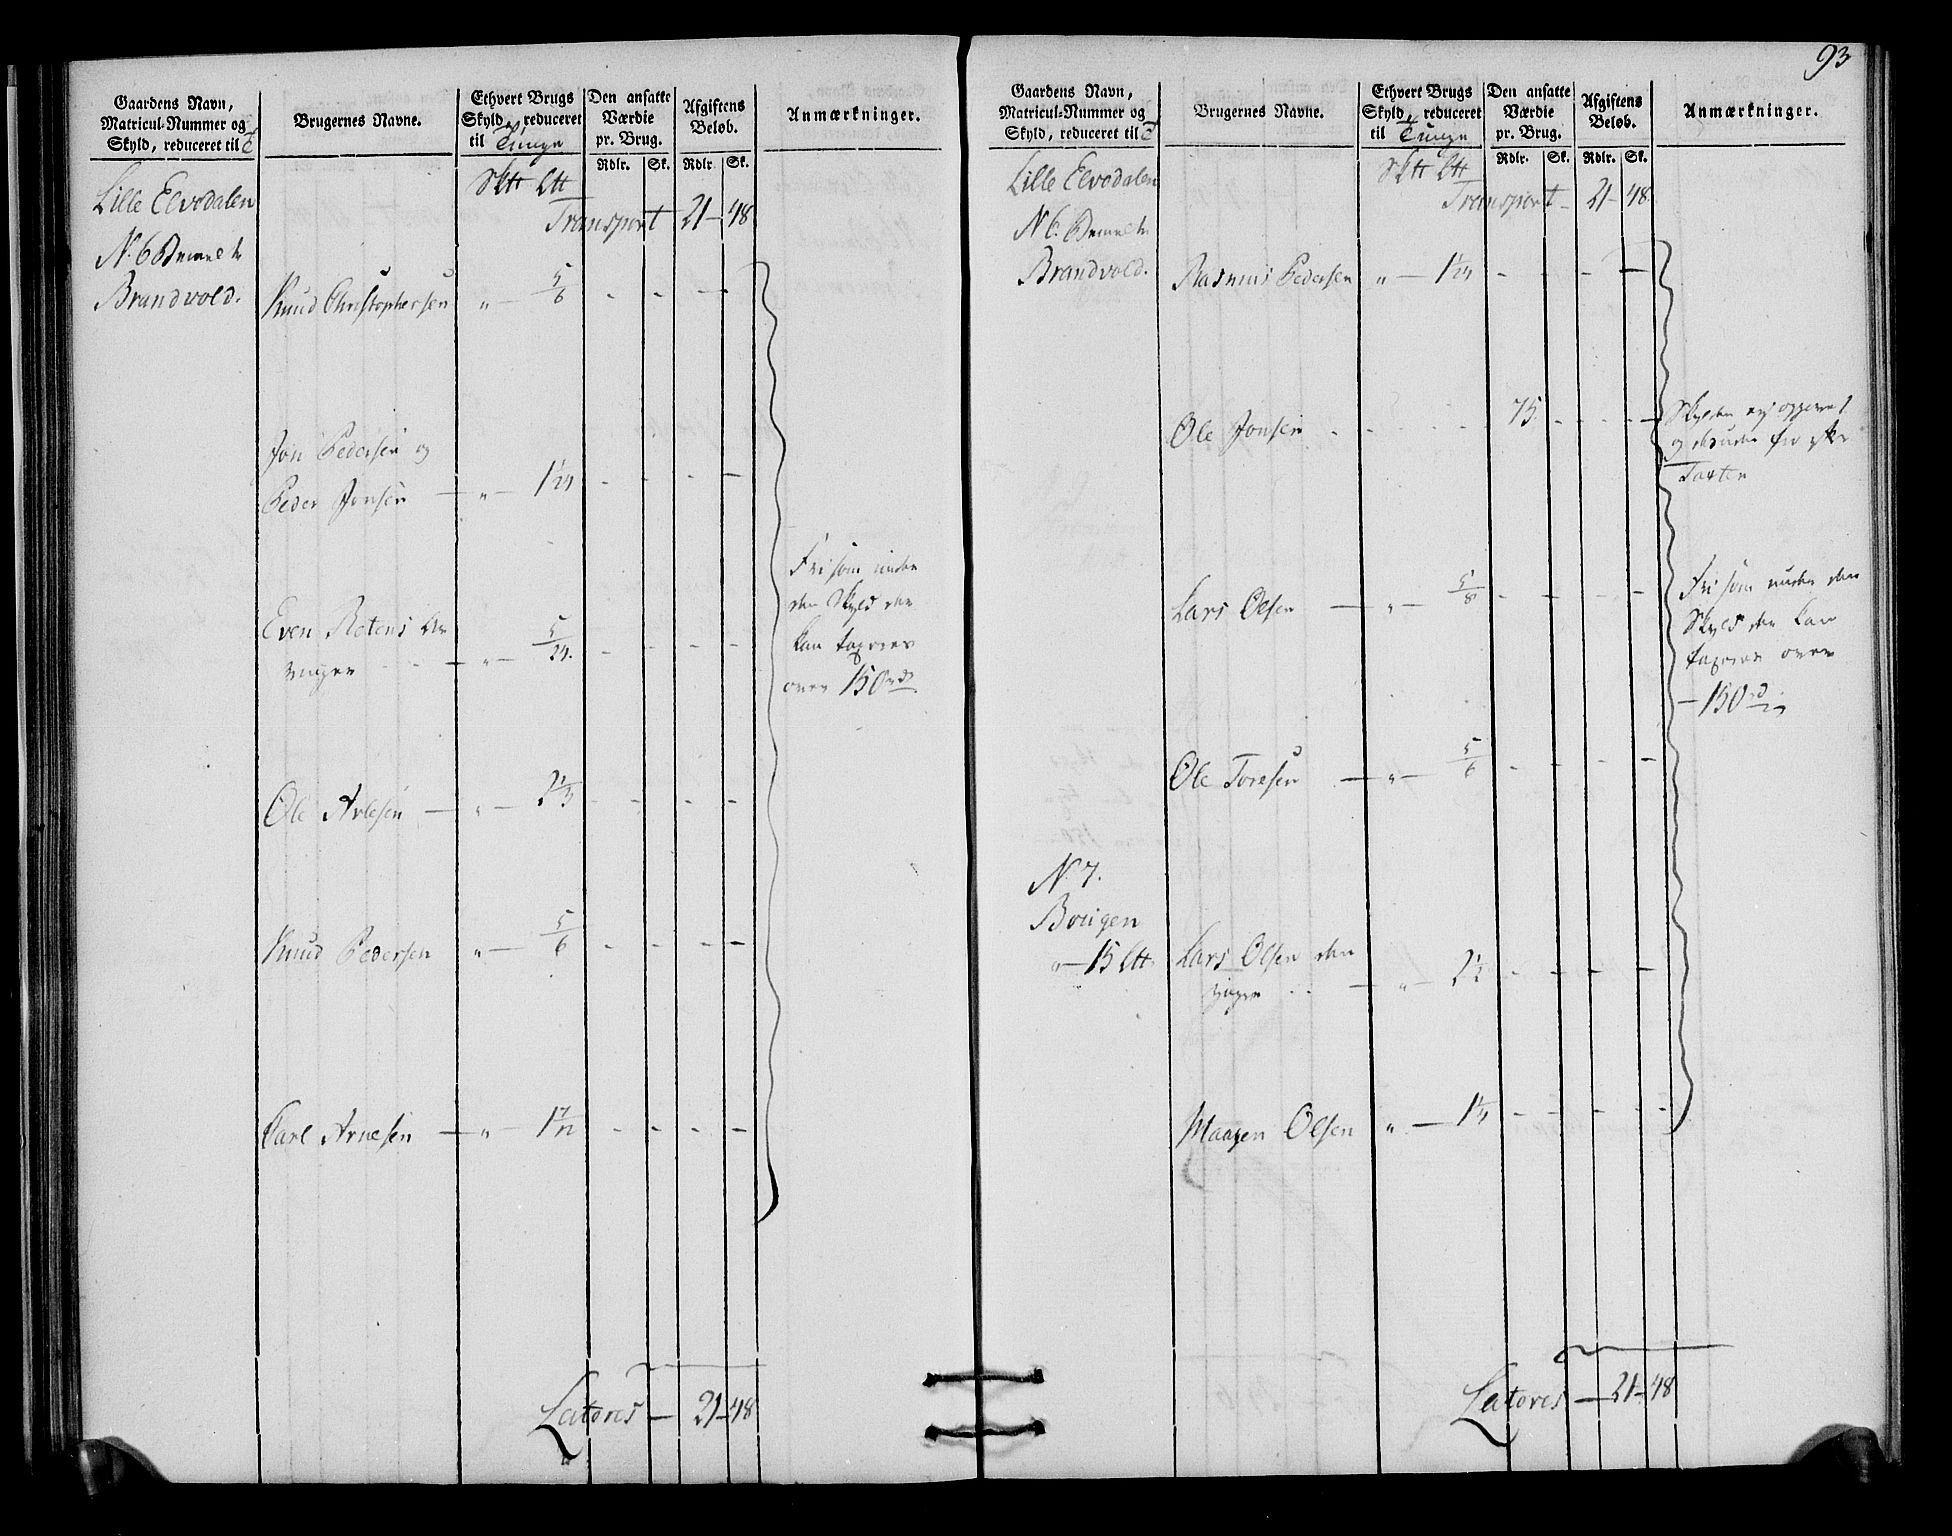 93
Gaardens Navn,
Matricul-Nummer og
Skyld, reduceret til
Brugernes Navne.
Ethvert Brugs
Skyld, reduceret
til Tunge
Den ansatte
Værdie
pr. Brug.
Rdlr. Sk.
Afgiftens
Beløb.
Rdlr. Sk.
Anmærkninger.
Lille Elvedalen
Transport 21 48
N. 6
Brandvold.
Knud Christophersen " 5/6
Jon Pedersen og
Peder Jonsen " 1 1/24
Even 5/24
Fri som under
den Skyld der
kan taxeres
over 150
Ole " 2 1/3
Knud Pedersen " 5/6
Carl Arnesen " 1 7/12
Latores 21 48
Gaardens Navn,
Matricul-Nummer og
Skyld, reduceret til
Brugernes Navne.
Ethvert Brugs
Skyld, reduceret
til Tunge
Den ansatte
Værdie
pr. Brug.
Rdlr. Sk.
Afgiftens
Beløb.
Rdlr. Sk.
Anmærkninger.
Lille Elvedalen
Transport 21 48
N. 6
Brandvold.
Rasmus Pedersen " 1 1/24
Ole Jonsen 75
Skylden ej opgivet
og desuden fri efter
Taxten
Lars Olsen " 5/8
Fri som under den
Skyld der kan
taxeres over
150
Ole Toresen " 5/6
N. 7.
" 15
Lars Olsen den
yngre " 2 1/2
Maagen Olsen "
Latores 21 48